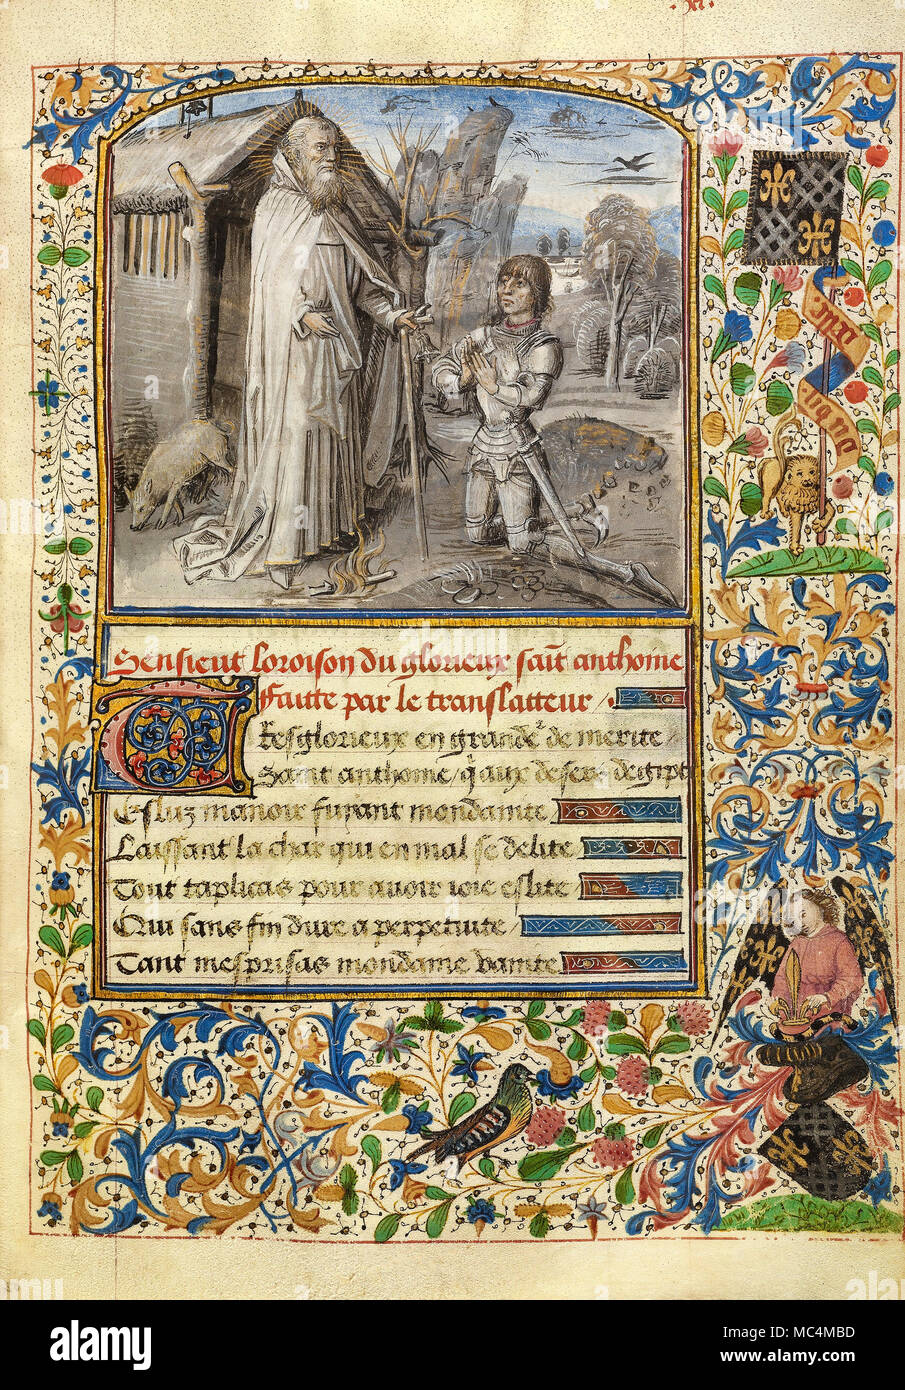 Sensieut loroison du glorieux sait anthoine
faitte par le translatteur
Tresglorieux en grande de merite
Saint anthoine q aux desers degipte
Esluz manoir fuyant mondainte
Laissant la char qui en mal se delite
Tout taplicas pour avoir ioie eslite
Qui sans fin dure a perpetuite
Tant mesprisas mondaine vanite
alamy
Image ID: MC4MBD
www.alamy.com